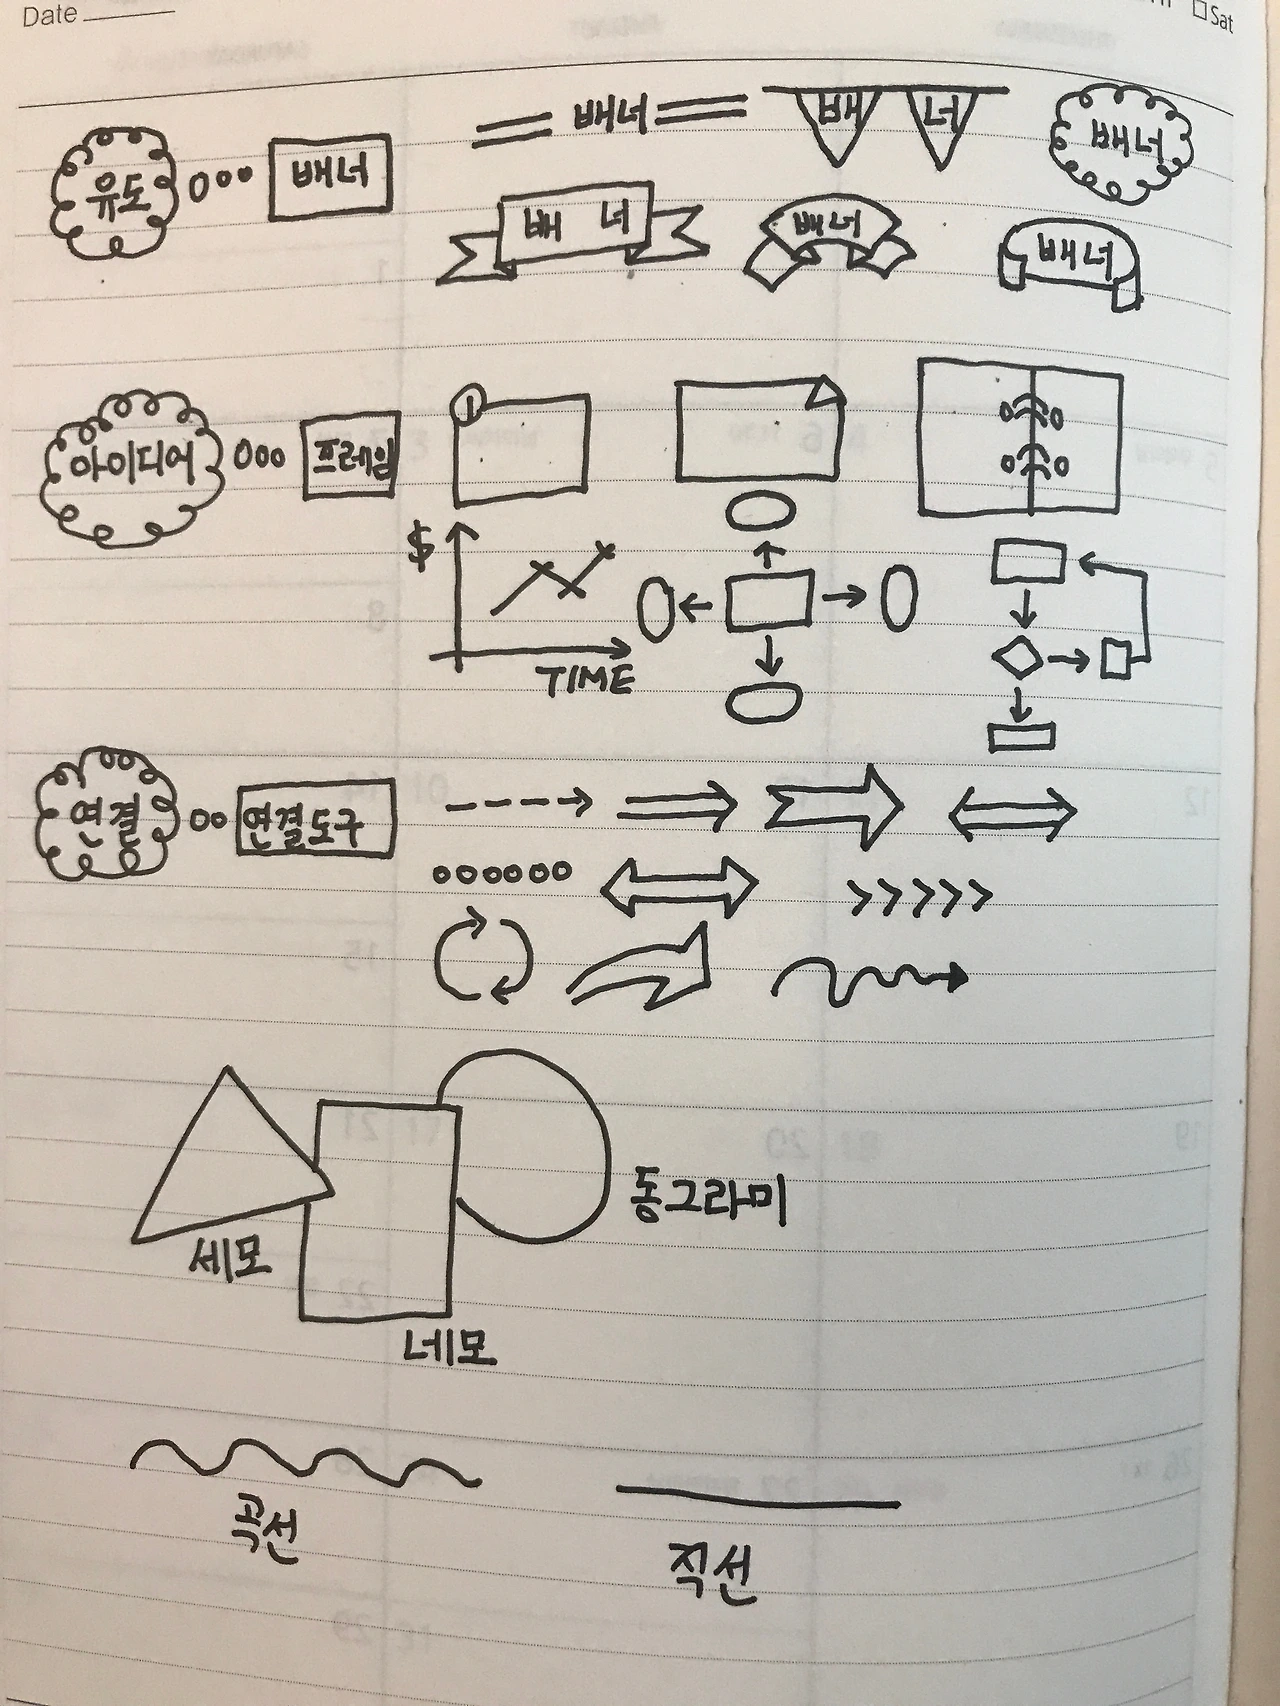 Date
Sat
유도 배너
배너
배 너
배너
배 너
배너
배너
아이디어 프레임
1
$
TIME
연결 연결도구
동그라미
세모
네모
곡선
직선